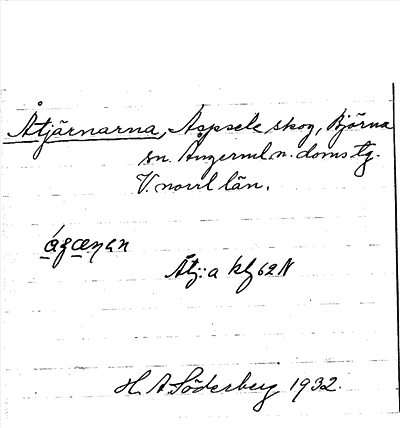 Åtjärnarna, Aspsele skog, Björna
sn. Ångerml. n. doms tg.
V. norrl län.
Åtj:a kf 62 N
H. A Söderberg 1932.